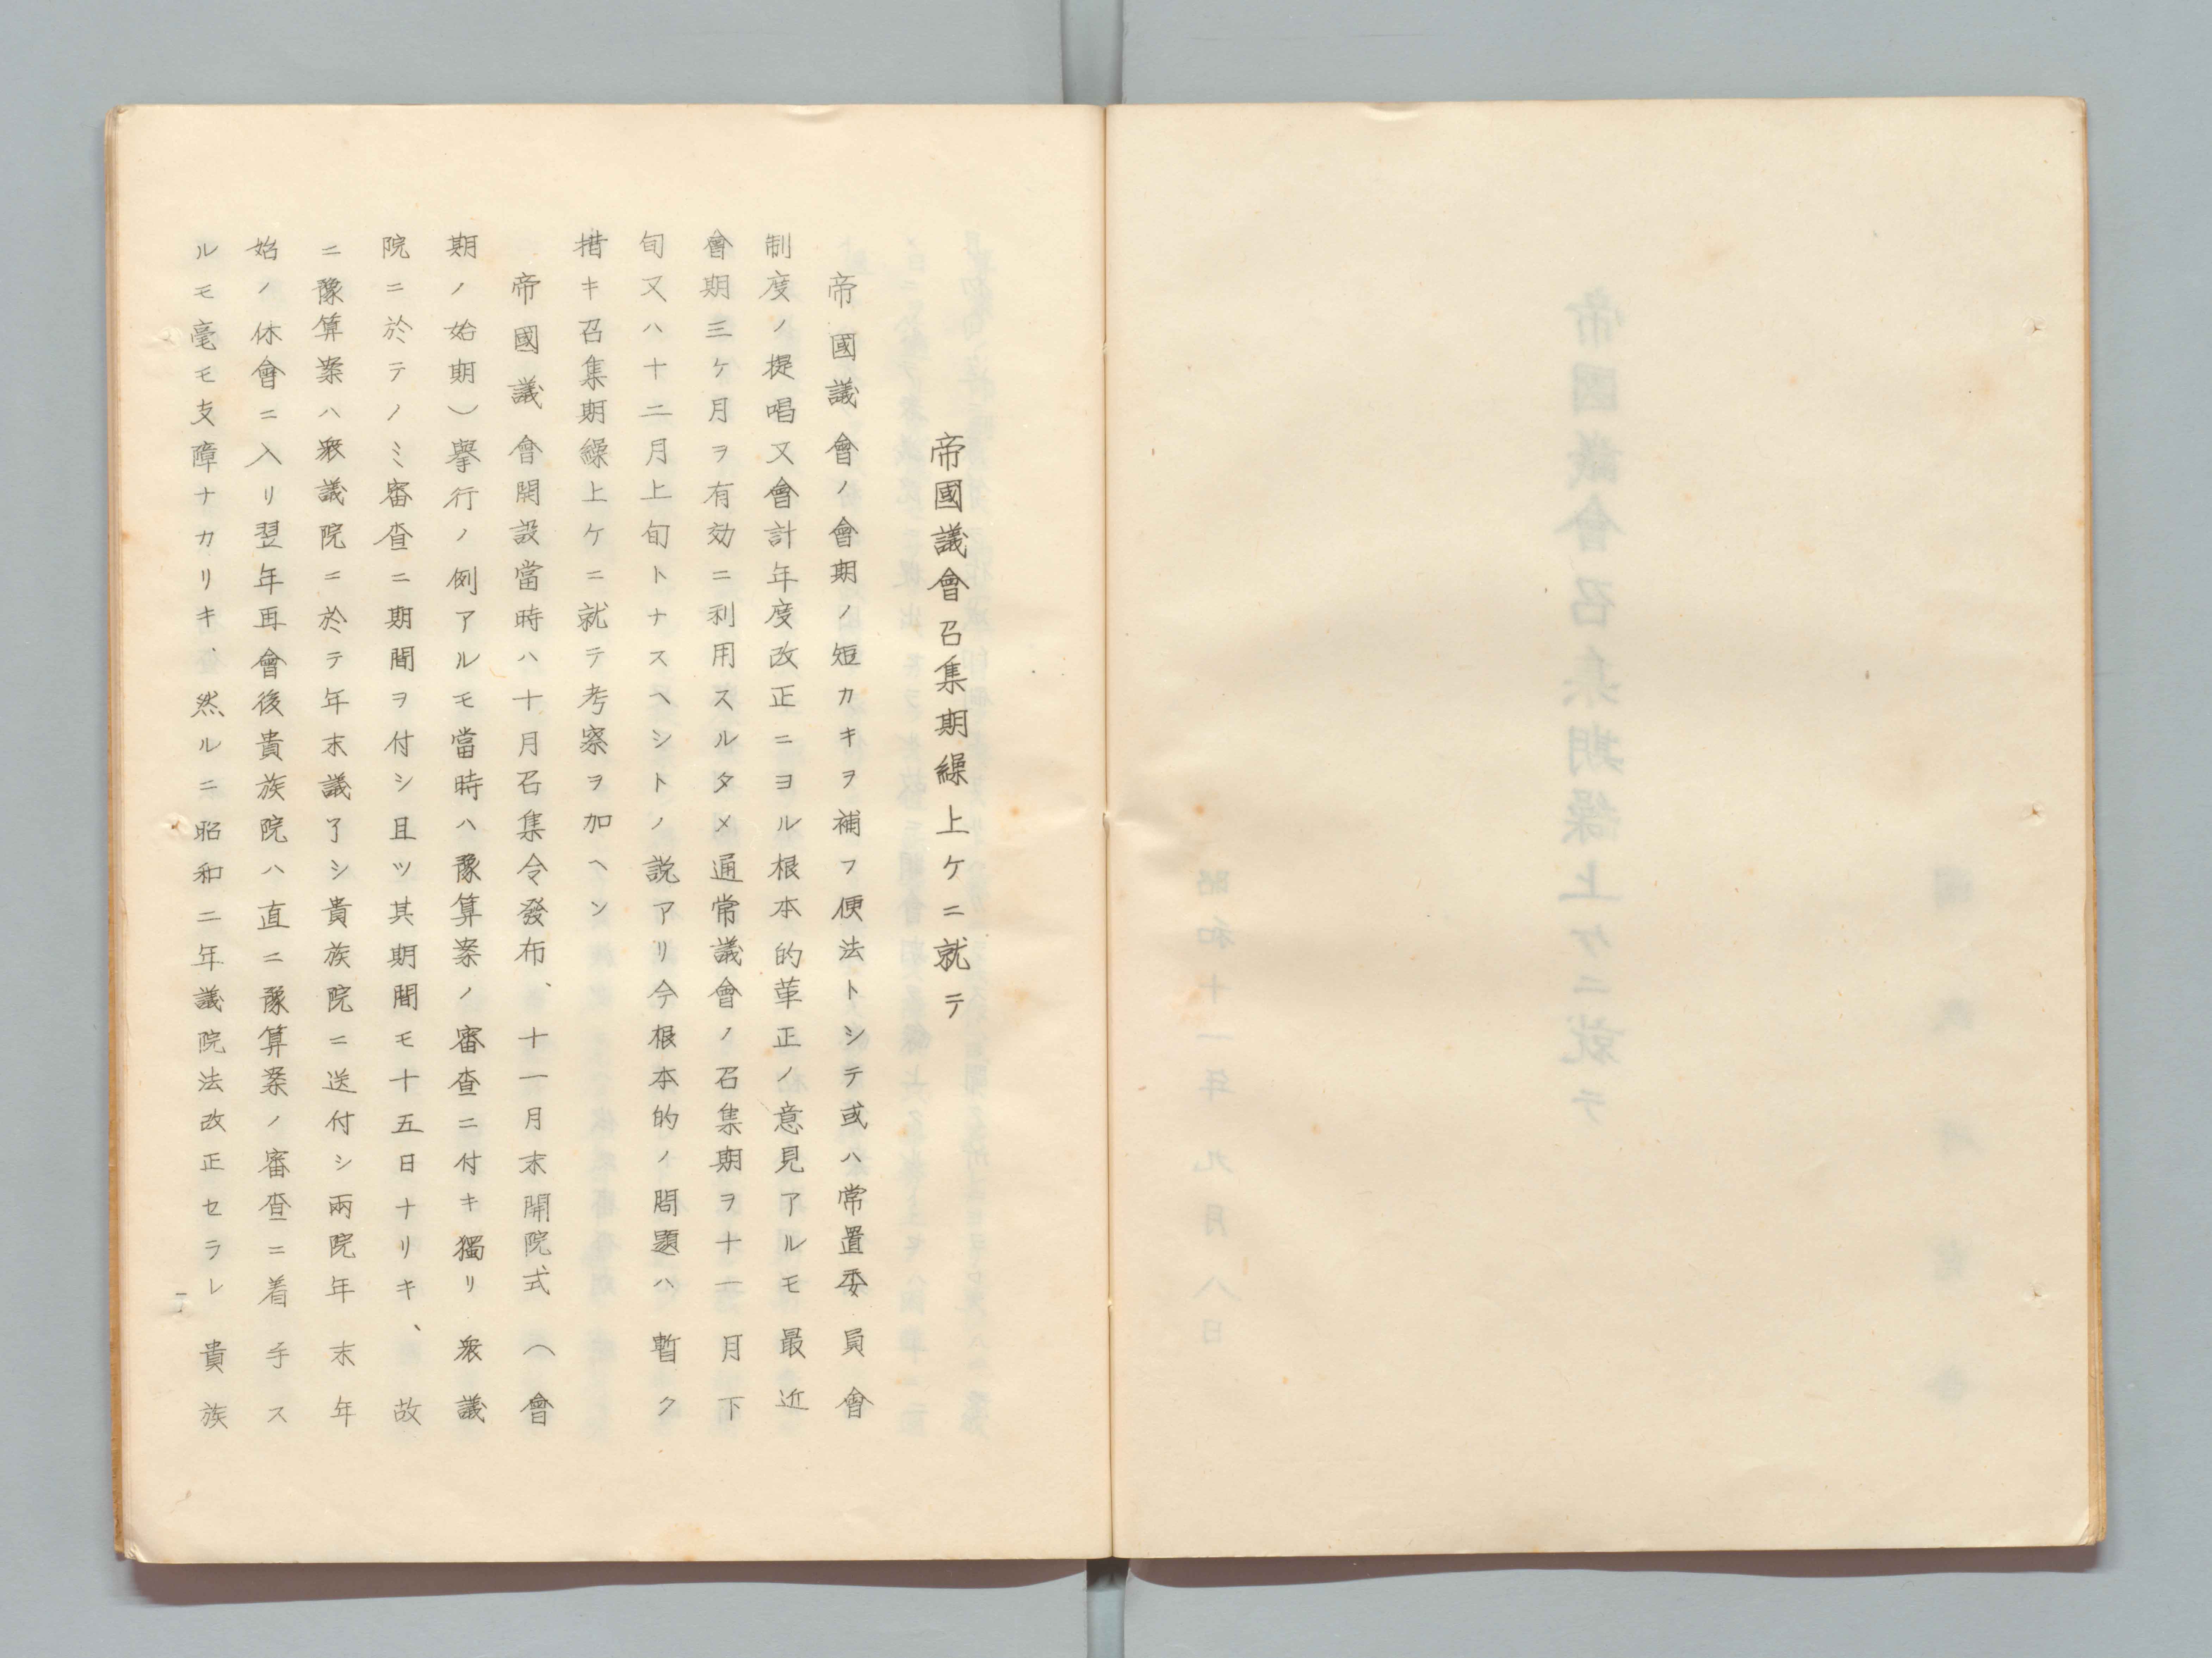 帝國議會召集期繰上ケニ就テ
帝國議會ノ會期ノ短カキヲ補フ便法トシテ或ハ常置委員會
制度ノ提唱又會計年度改正ニヨル根本的革正ノ意見アルモ最近
會期三ケ月ヲ有効ニ利用スルタメ通常議會ノ召集期ヲ十一月下
旬又ハ十二月上旬トナスヘシトノ説アリ今根本的ノ問題ハ暫ク
措キ召集期繰上ケニ就テ考察ヲ加ヘン
帝國議會開設當時ハ十月召集令發布、十一月末開院式（會
期ノ始期）擧行ノ例アルモ當時ハ豫算案ノ審査ニ付キ獨リ衆議
院ニ於テノミ審査ニ期間ヲ付シ且ツ其期間モ十五日ナリキ、故
ニ豫算案ハ衆議院ニ於テ年末議了シ貴族院ニ送付シ兩院年末年
始ノ休會ニ入リ翌年再會後貴族院ハ直ニ豫算案ノ審査ニ着手ス
ルモ毫モ支障ナカリキ、然ルニ昭和二年議院法改正セラレ貴族